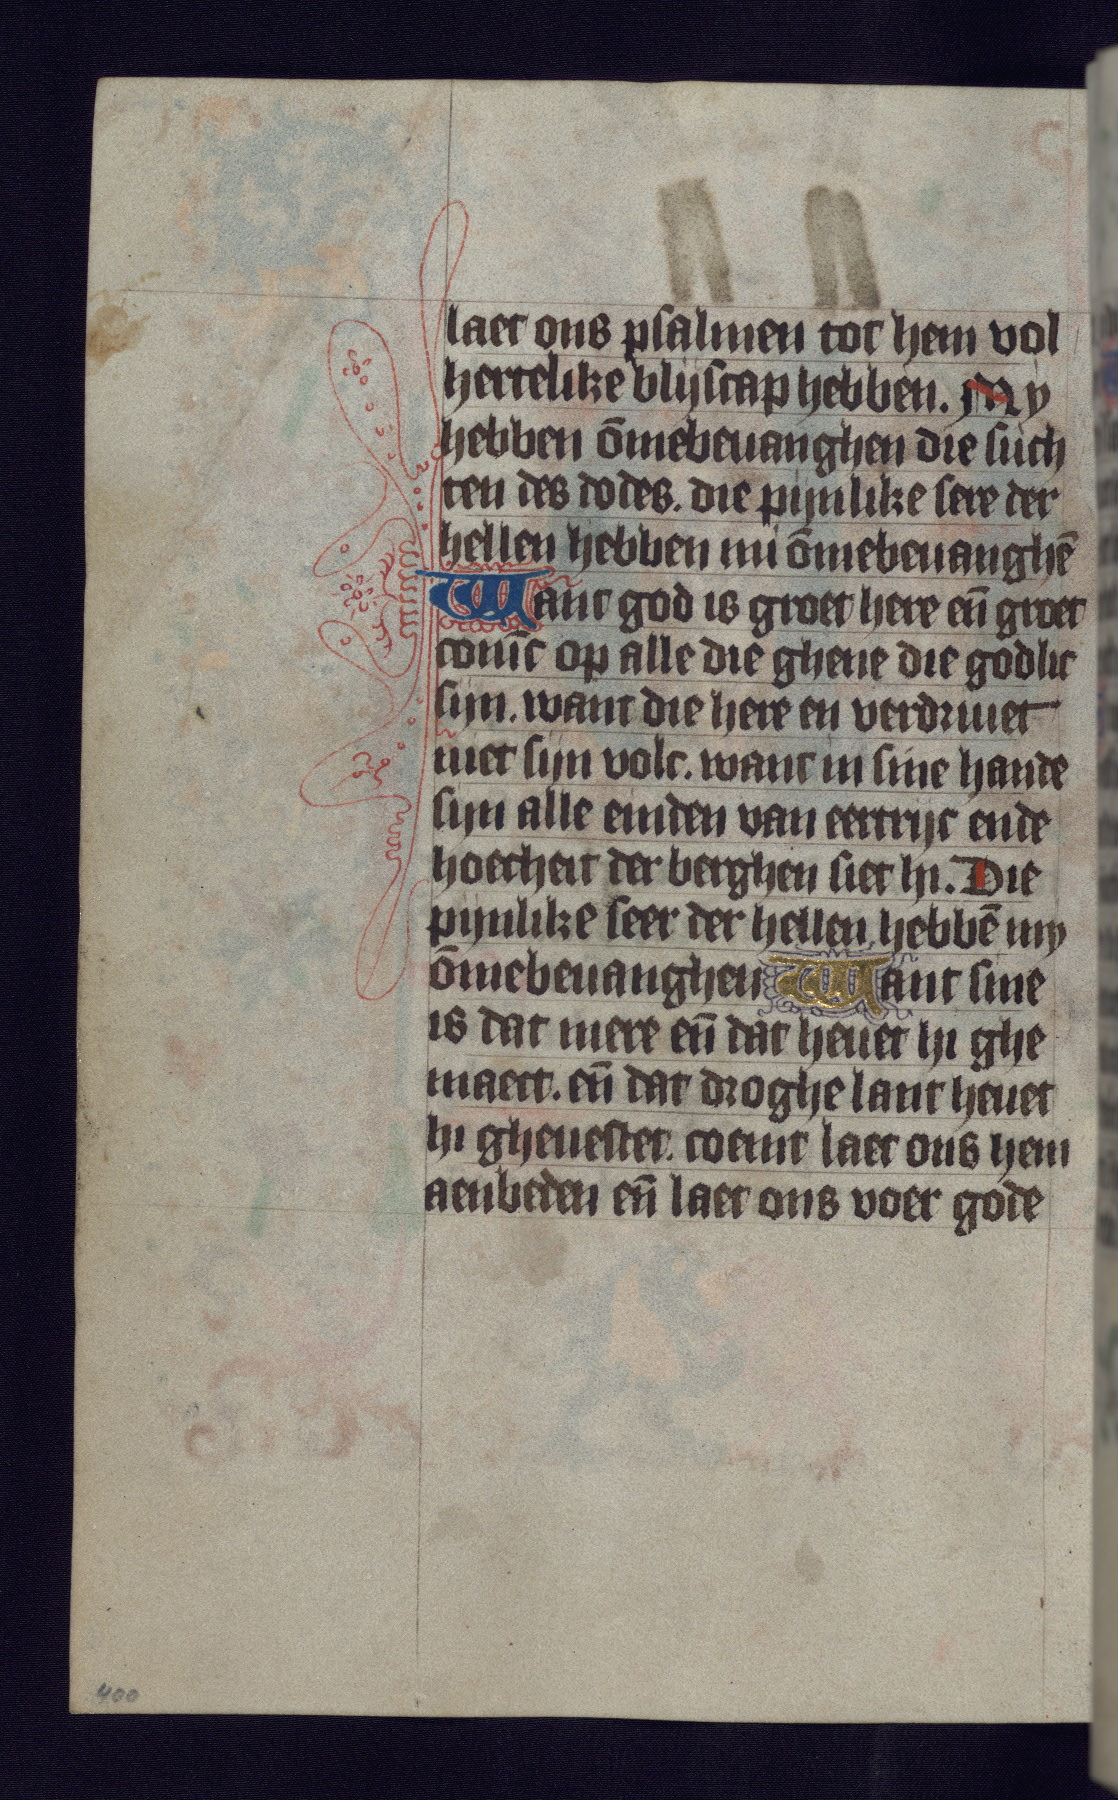 laet ons psalmen tot hem vol
hertelike blijscap hebben. My
hebben ōmebeuanghen die such
ten des dodes. die pijnlike sere der
hellen hebben mi ōmebeuanghē
Want god is groet here en̄ groet
conīc op alle die ghene die godlic
sijn. want die here en verdriuet
niet sijn volc. want in sine hande
sijn alle einden van eertrijc ende
hoecheit der berghen siet hi. Die
pijnlike seer der hellen hebbē my
ōmebeuanghen Want sine
is dat mere en̄ dat heuet hi ghe
maect. en̄ dat droghe lant heuet
hi gheuestet. coemt laet ons hem
aenbeden en̄ laet ons voer gode
400